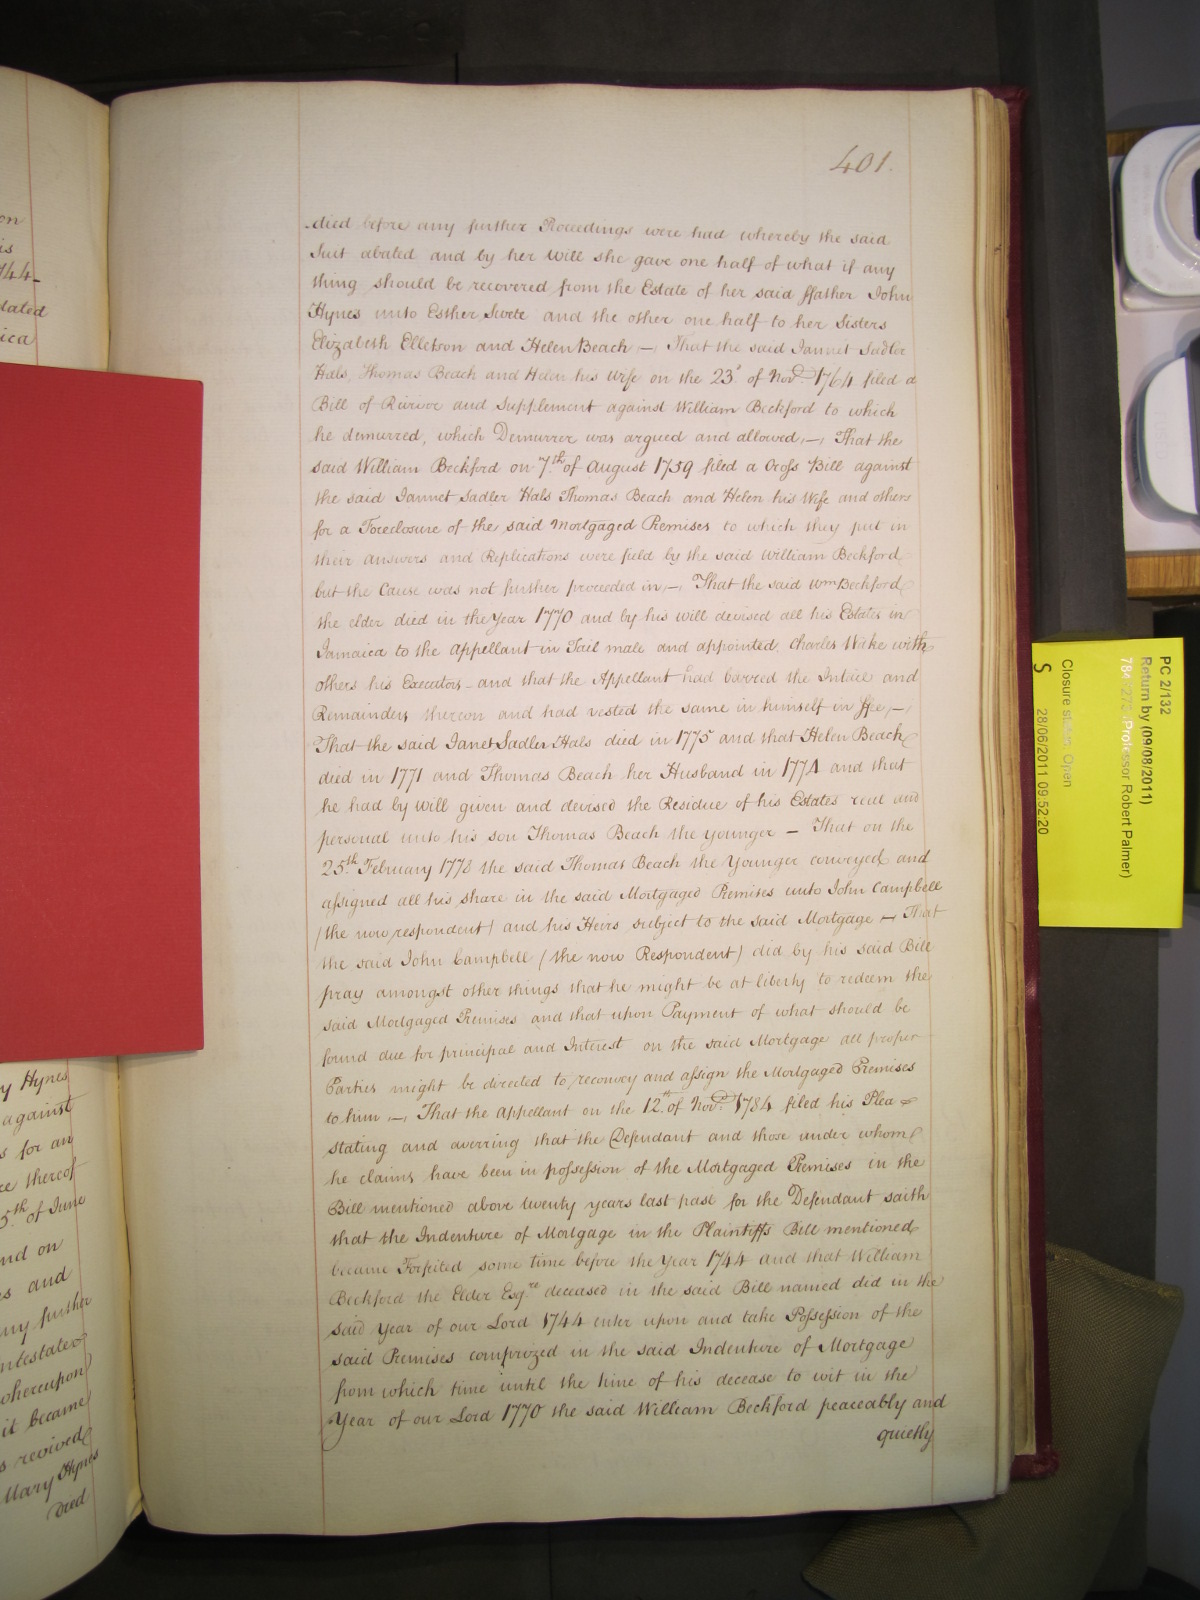 401.
died before any further Proceedings were had whereby the said
Suit abated and by her Will she gave one half of what if any
thing should be recovered from the Estate of her said ffather John
Hynes unto Esther Swete and the other one half to her Sisters
Elizabeth Elletson and Helen Beach —, That the said Jannet Sadler
Hals, Thomas Beach and Helen his Wife on the 23d of Novr. 1764 filed a
Bill of Revivor and Supplement against William Beckford to which
he demurred, which Demurrer was argued and allowed, —, That the
said William Beckford on 7.th of August 1759 filed a Cross Bill against
the said Jannet Sadler Hals Thomas Beach and Helen his Wife and others
for a Foreclosure of the said Mortgaged Premises to which they put in
their answers and Replications were field by the said William Beckford
but the Cause was not further proceeded in, —, That the said Wm Beckford
the elder died in the Year 1770 and by his will devised all his Estates in
Jamaica to the Appellant in Tail male and appointed Charles Wake with
others his Executors — and that the Appellant had barred the Intail and
Remainders thereon and had vested the same in himself in ffee, —,
That the said Janet Sadler Hals died in 1775 and that Helen Beach
died in 1771 and Thomas Beach her Husband in 1774 and that
he had by will given and devised the Residue of his Estates real and
personal unto his son Thomas Beach the younger — That on the
25.th February 1778 the said Thomas Beach the Younger conveyed and
assigned all his share in the said Mortgaged Premises unto John Campbell
(the now respondent) and his Heirs subject to the said Mortgage — That
the said John Campbell (the now Respondent) did by his said Bill
pray amongst other things that he might be at liberty to redeem the
said Mortgaged Premises and that upon Payment of what should be
found due for principal and Interest on the said Mortgage all proper
Parties might be directed to reconvey and assign the Mortgaged Premises
to him —, That the Appellant on the 12.th of Novr. 1784 filed his Plea
stating and averring that the Defendant and those under whom
he claims have been in possession of the Mortgaged Premises in the
Bill mentioned above twenty years last past for the Defendant saith
that the Indenture of Mortgage in the Plaintiffs Bill mentioned
became Forfeited some time before the Year 1744 and that William
Beckford the Elder Esqre. deceased in the said Bill named did in the
said Year of our Lord 1744 enter upon and take Possession of the
said Premises comprized in the said Indenture of Mortgage
from which time until the time of his decease to wit in the
Year of our Lord 1770 the said William Beckford peaceably and
quietly
on
is
744
dated
ica
y Hynes
against
s for an
ce thereof
5.th of June
and on
s and
any further
intestate
whereupon
it became
s revived
Mary Hynes
Died
PC 2/132
Return by (09/08/2011)
Professor Robert Palmer)
Closure status: Open
S 28/06/2011 09:52:20